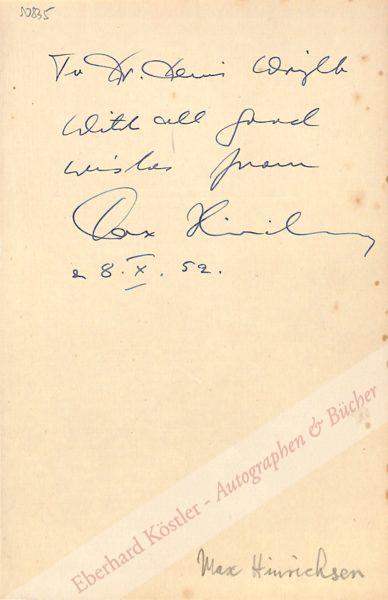 50835
To Dr. Denis Wright
With all good
wishes from
Max Hinrichsen
28.X.52.
Eberhard Köstler - Autographen & Bücher
Max Hinrichsen